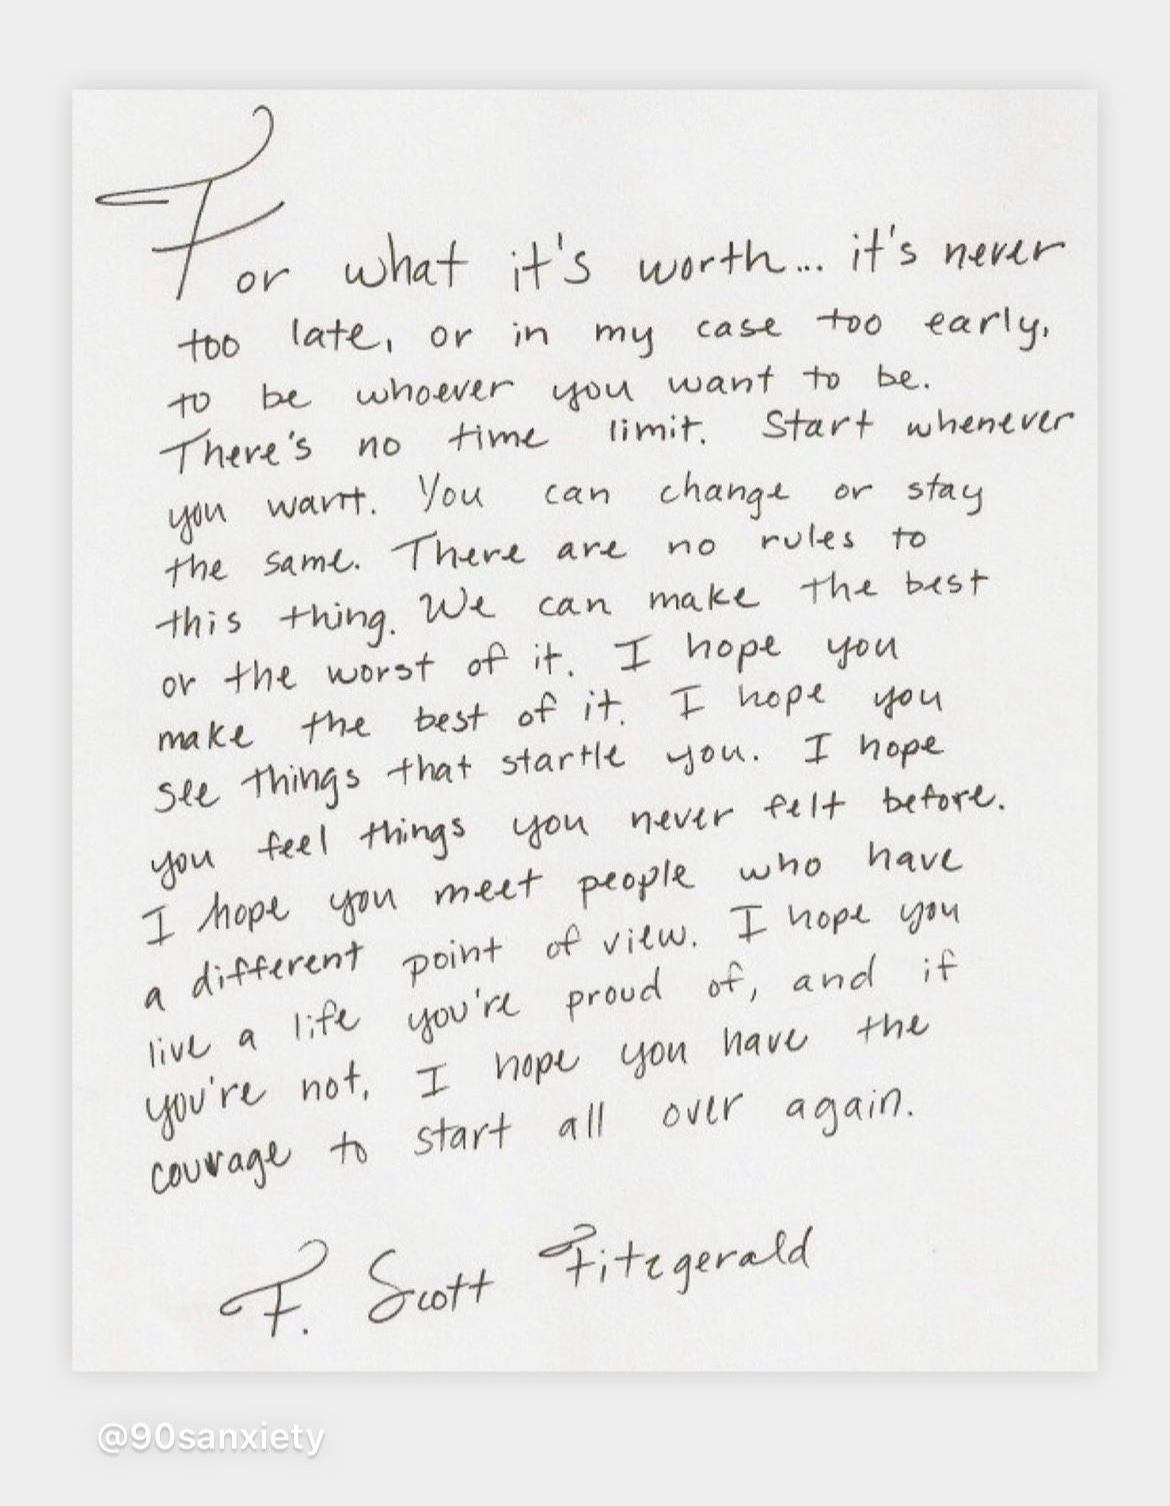 For what it's worth... it's never
too late, or in my case too early,
to be whoever you want to be.
There's no time limit. Start whenever
you want. You can change or stay
the same. There are no rules to
this thing. We can make the best
or the worst of it. I hope you
make the best of it. I hope you
see things that startle you. I hope
you feel things you never felt before.
I hope you meet people who have
a different point of view. I hope you
live a life you're proud of, and if
you're not, I hope you have the
courage to start all over again.
F. Scott Fitzgerald
@90sanxiety